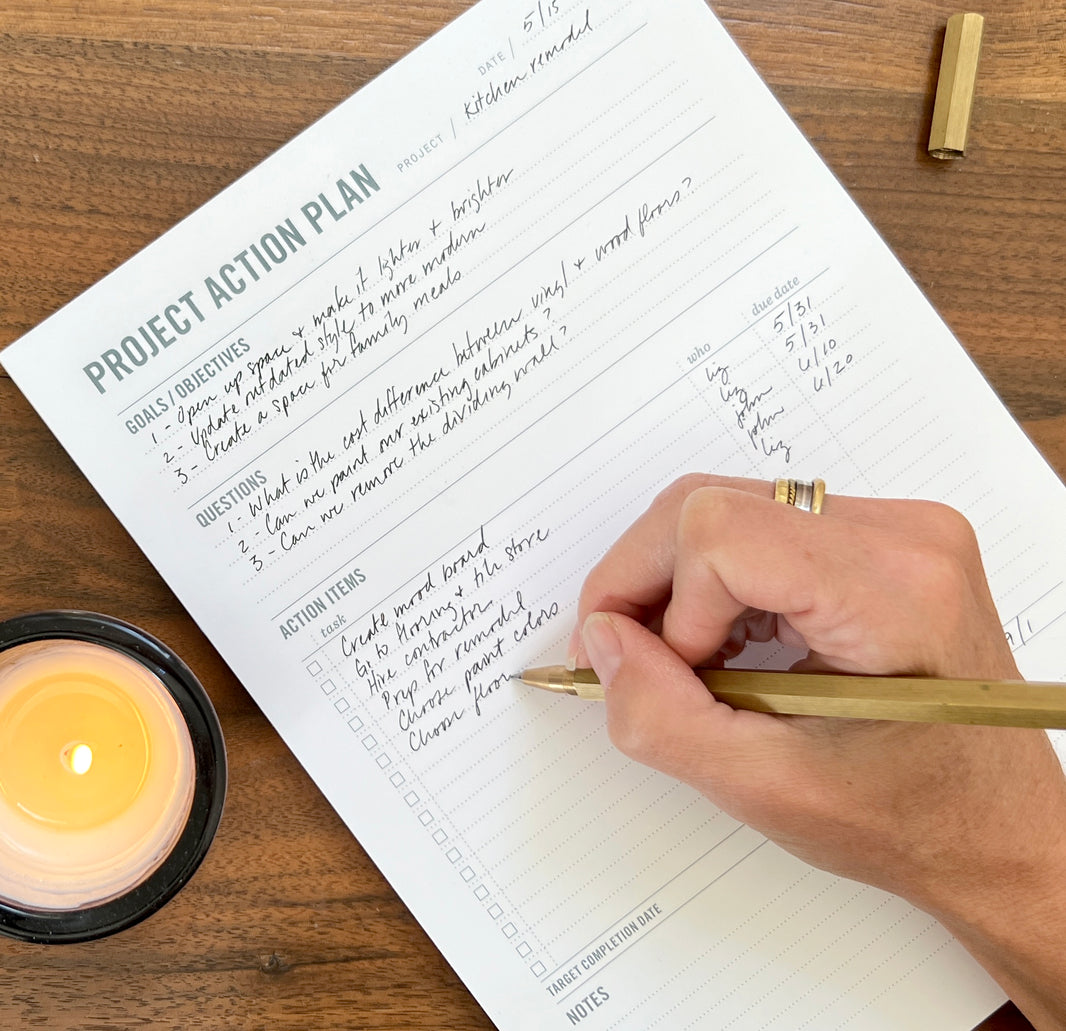 DATE / 5/15
PROJECT / Kitchen remodel
PROJECT ACTION PLAN
GOALS / OBJECTIVES
1 - Open up space + make it lighter + brighter
2 - Update outdated style to more modern
3 - Create a space for family meals
QUESTIONS
1 - What is the cost difference between vinyl + wood floors?
2 - Can we paint our existing cabinets?
3 - Can we remove the dividing wall?
ACTION ITEMS
task who due date
Create mood board liz 5/31
Go to flooring + tile store liz 5/31
Hire contractor john 6/10
Prep for remodel john 6/20
Choose paint colors liz
Choose floor
TARGET COMPLETION DATE 9/1
NOTES